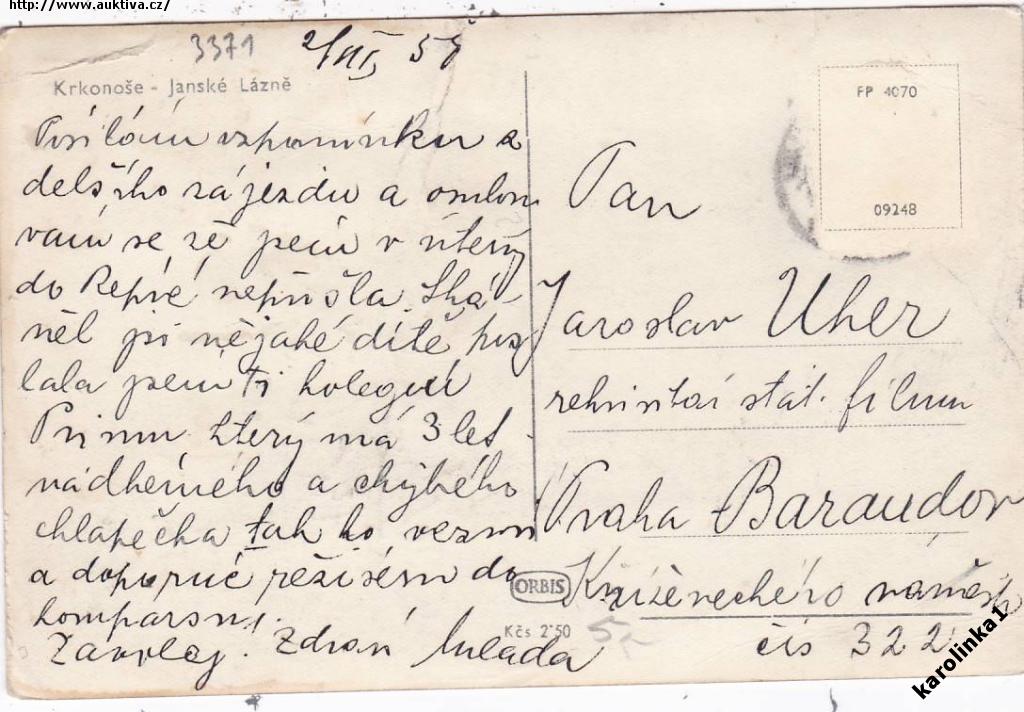 http://www.auktiva.cz/
3371
2/VII 57
Krkonoše - Janské Lázně
Posílám vzpomínku z
delšího zájezdu a omlou
vám se, že jsem v úterý
do Repré nepřišla. Shá-
něl jsi nějaké dítě, pos
lala jsem Ti kolegu
Primu který má 3 let-
nádherného a chytrého
chlapečka tak ho vezmi
a doporuč režisérům do
komparsu.
Zavolej. Zdraví Mlada
FP 4070
09248
Pan
Jaroslav Uher
rekvisitář stát. filmu
Praha Barandov
Kněževeckého náměstí
čís 322
ORBIS
Kčs 2·50
karolinka1